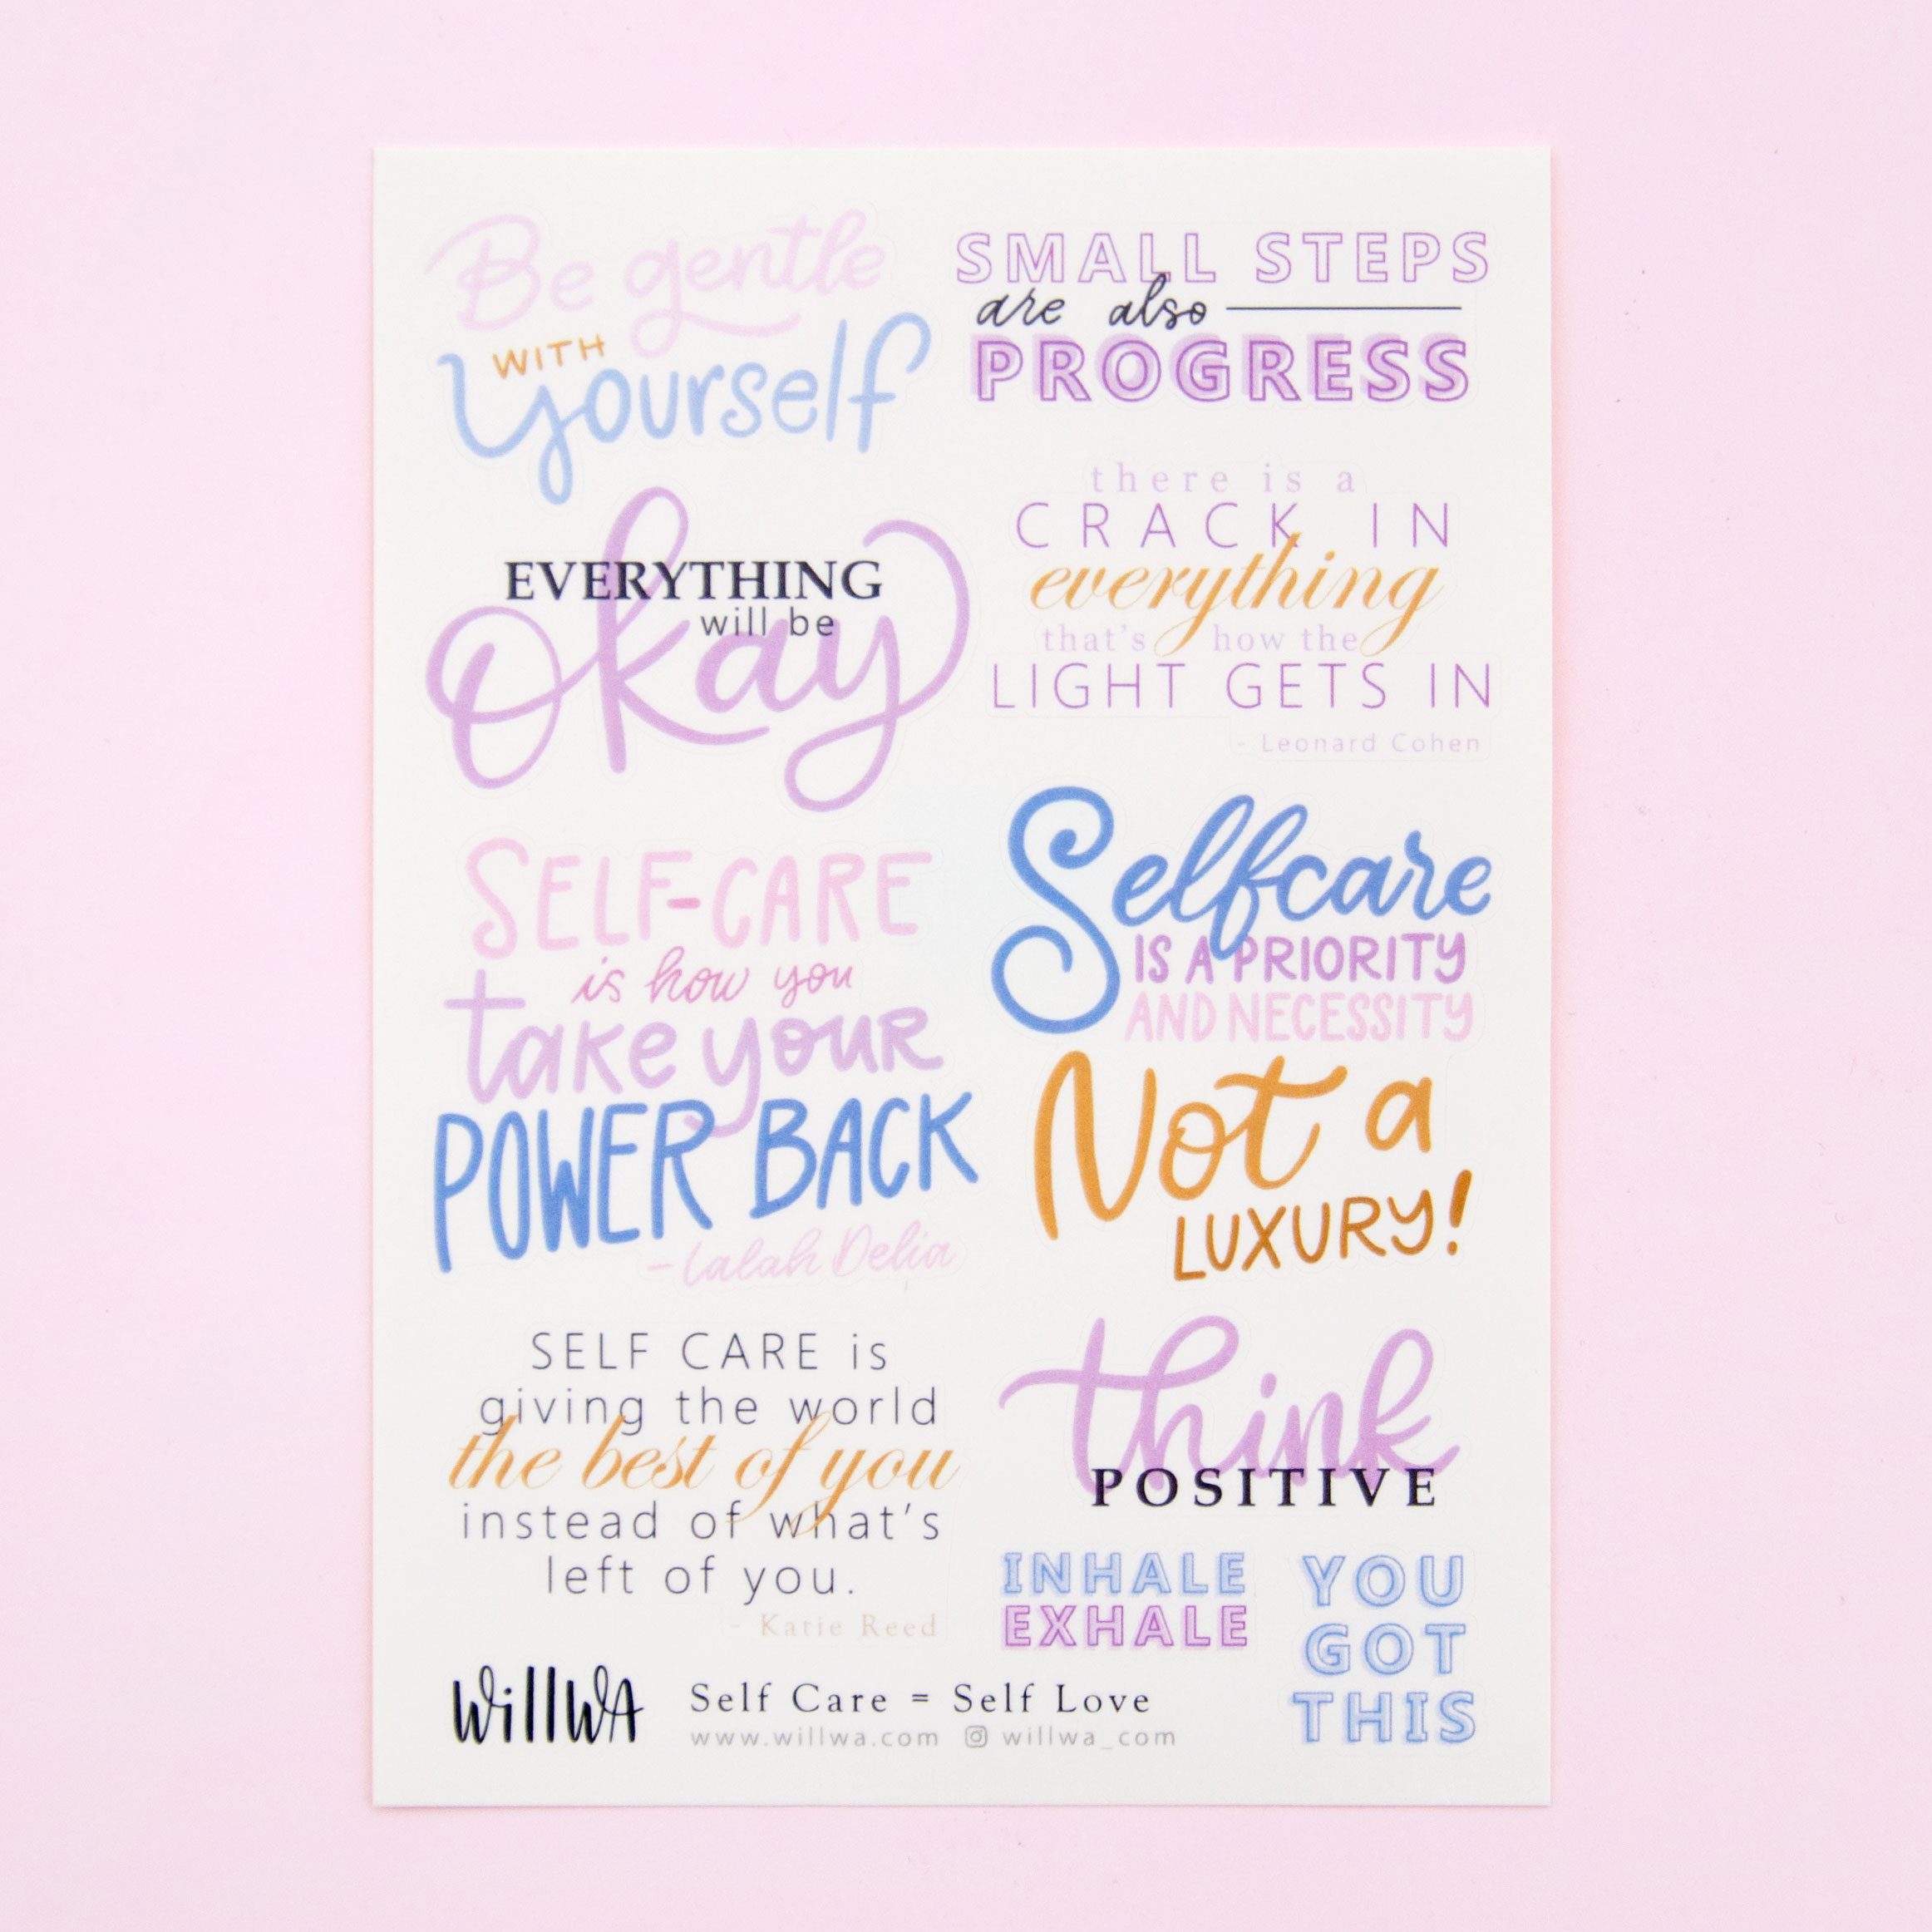 Be gentle
WITH
yourself
SMALL STEPS
are also
PROGRESS
EVERYTHING
will be
okay
there is a
CRACK IN
everything
that's how the
LIGHT GETS IN
- Leonard Cohen
SELF-CARE
is how you
take your
POWER BACK
- Lalah Delia
Selfcare
IS A PRIORITY
AND NECESSITY
Not a
LUXURY!
SELF CARE is
giving the world
the best of you
instead of what's
left of you.
- Katie Reed
think
POSITIVE
INHALE
EXHALE
YOU
GOT
THIS
WillWA
Self Care = Self Love
www.willwa.com willwa_com